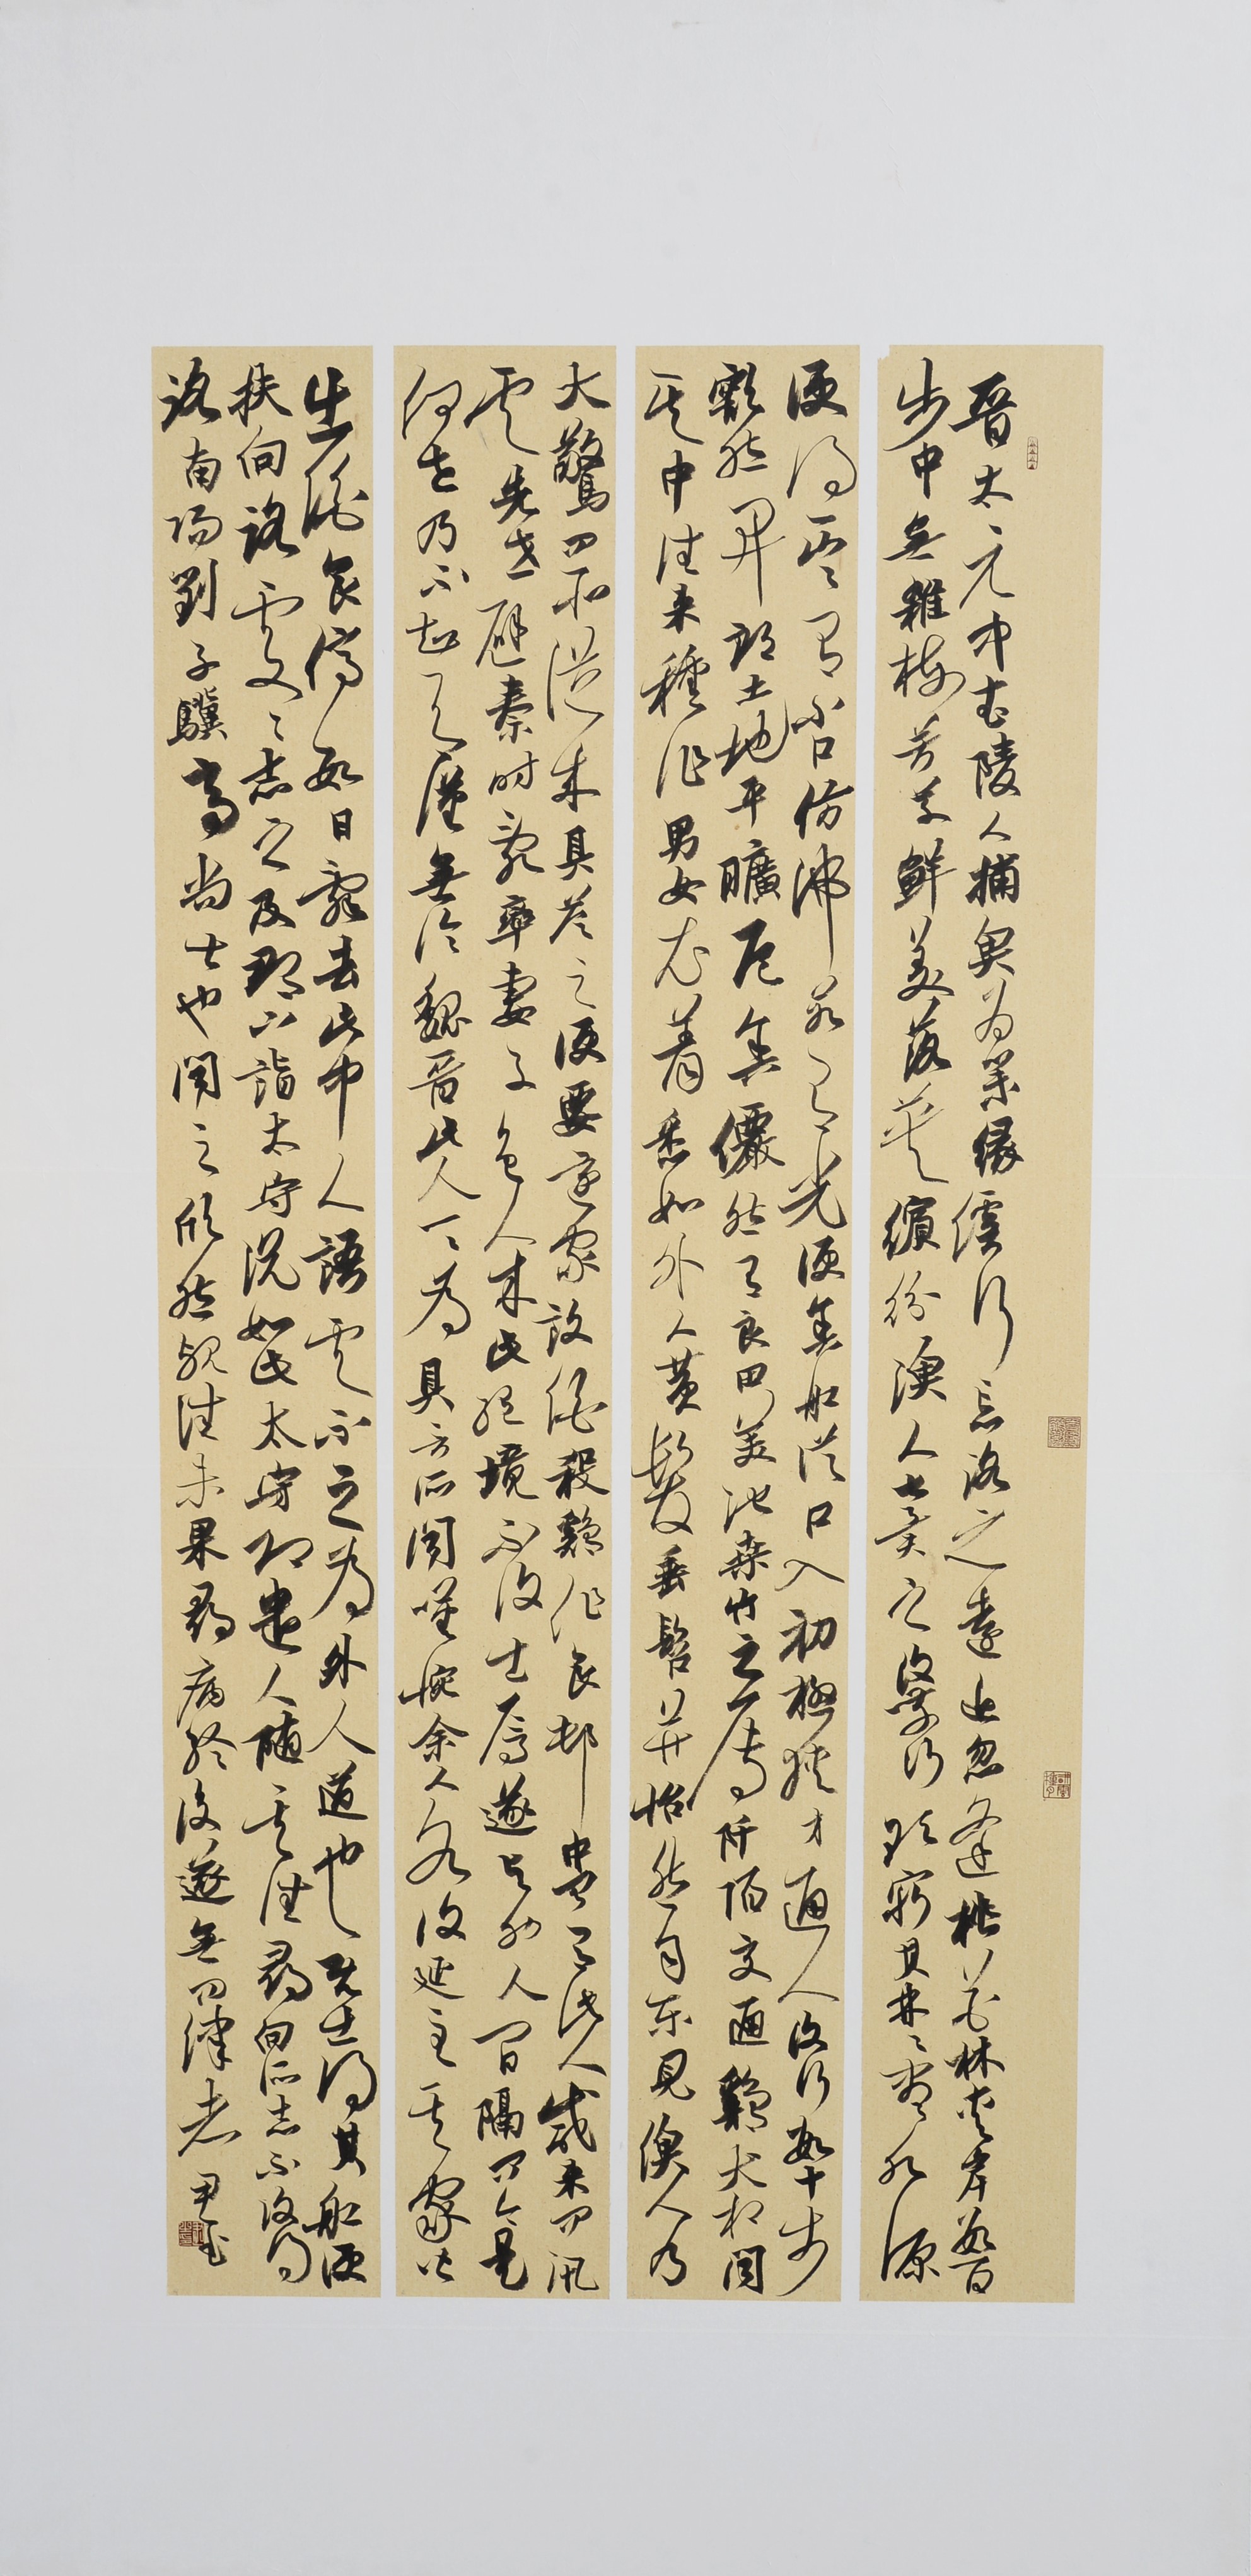 晉太元中武陵人捕魚為業緣溪行忘路之遠近忽逢桃花林夾岸數百
步中無雜樹芳草鮮美落英繽紛漁人甚異之復前行欲窮其林〻盡水源
便得有小口仿沸若有光便舍船從口入初極狹才通人復行數十步
豁然開朗土地平曠屋舍儼然有良田美池桑竹之屬阡陌交通雞犬相聞
其中往來種作男女衣着悉如外人黃髮垂髫並怡然自樂見漁人乃
大驚問所從來具答之便要還家設酒殺雞作食村中聞有此人咸來問訊
云先世避秦時亂率妻子邑人來此絕境不復出焉遂與外人間隔問今是
何世乃不知有漢無論魏晉此人一〻為具言所聞嘆惋余人各復延至其家皆
出酒食停數日辭去此中人語云不足為外人道也既出得其船便
扶向路處〻志之及郡下詣太守說如此太守即遣人隨其往尋向所志不復得
路南陽劉子驥高尚士也聞之欣然規往未果尋病終後遂無問津者